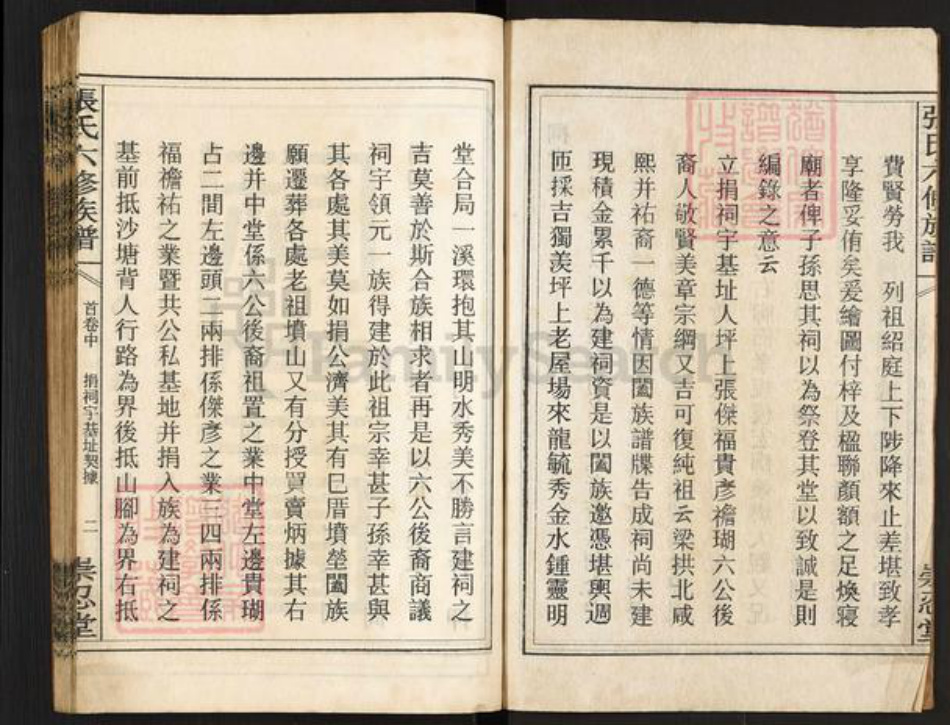 費賢勞我 列祖紹庭上下陟降來止差堪致孝
享隆妥侑矣爰繪圖付梓及楹聯顏額之足煥寢
廟者俾子孫思其祠以為祭登其堂以致誠是則
編錄之意云
立捐祠宇基址人坪上張傑福貴彥襜瑚六公後
裔人敬賢美章宗綱又吉可復純祖云梁拱北咸
熙并祐裔一德等情因闔族譜牒告成祠尚未建
現積金累千以為建祠資是以闔族邀憑堪輿週
匝採吉獨羨坪上老屋場來龍毓秀金水鍾靈明
堂合局一溪環抱其山明水秀美不勝言建祠之
吉莫善於斯合族相求者再是以六公後裔商議
祠宇領元一族得建於此祖宗幸甚子孫幸甚與
其各處其美莫如捐公濟美其有已厝墳塋闔族
願遷葬各處老祖墳山又有分授買賣炳據其右
邊并中堂係六公後裔祖置之業中堂左邊貴瑚
占二間左邊頭二兩排係傑彥之業三四兩排係
福襜祐之業暨共公私基地并捐入族為建祠之
基前抵沙塘背人行路為界後抵山腳為界右抵
張氏六修族譜 首卷中 捐祠宇基址契據 二 崇忍堂
FamilySearch